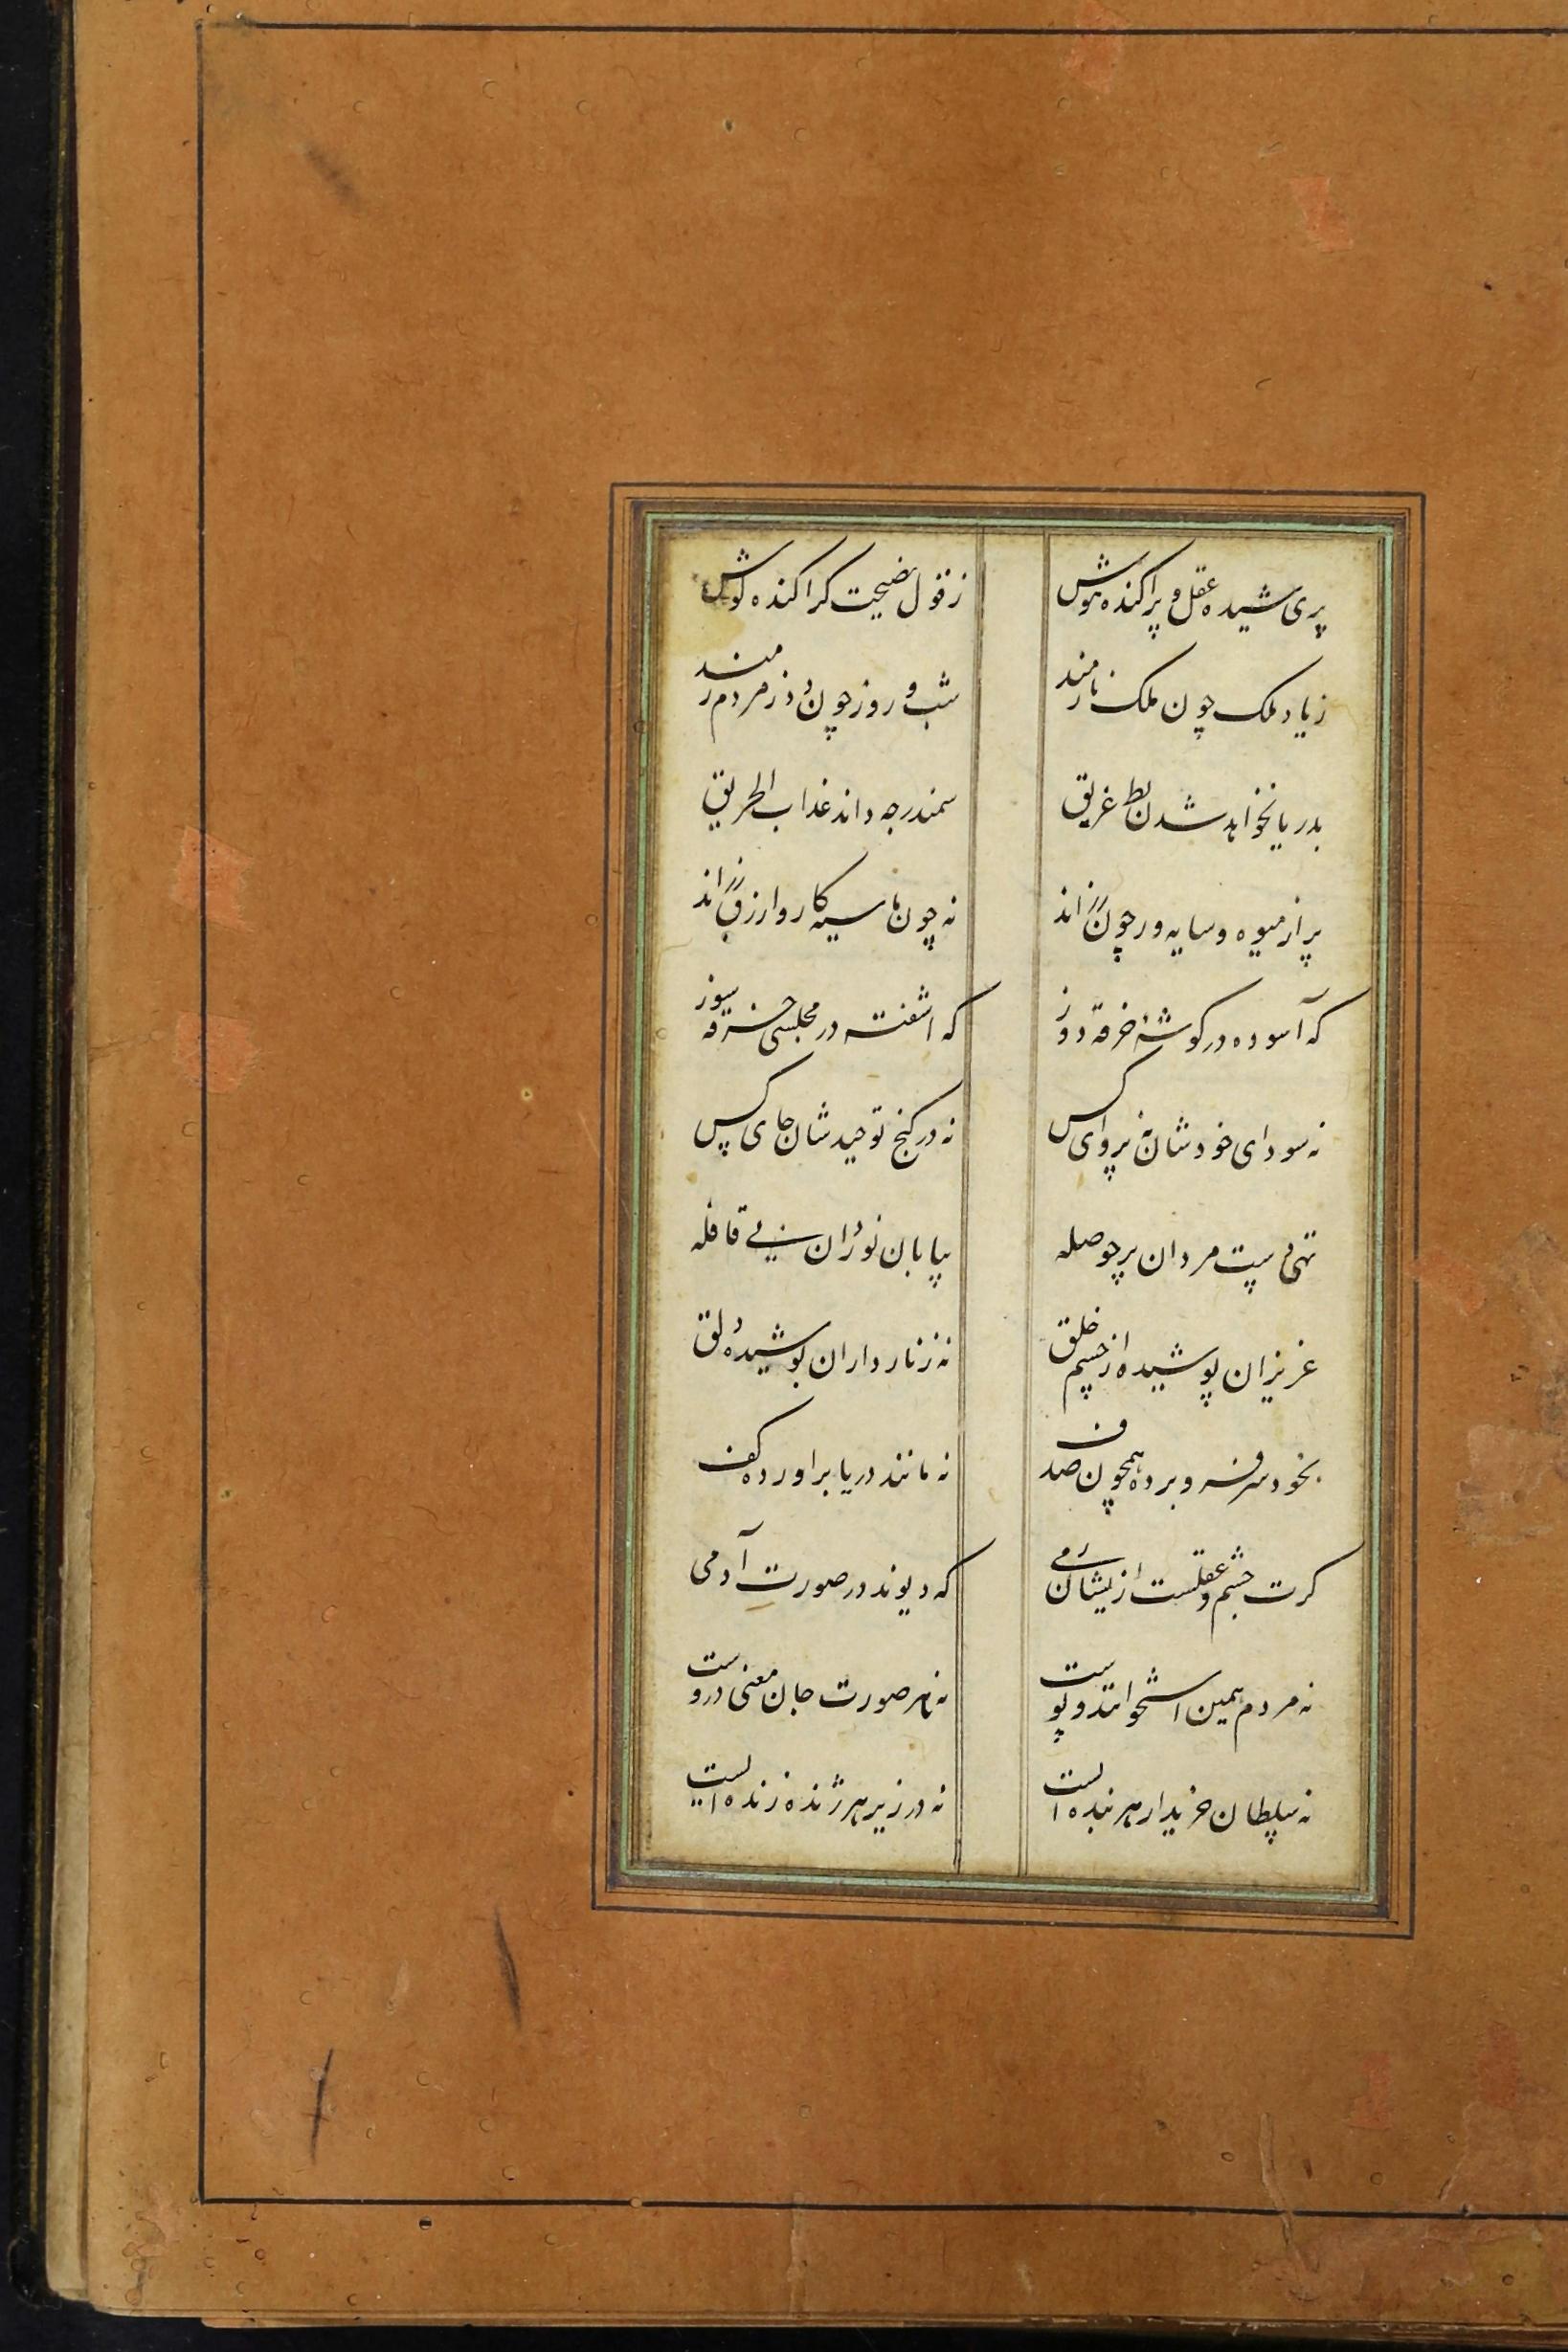 پری شیده عقل و پراکنده هوش ز قول نصیحت کر اکنده کوش
زیاد ملک چون ملک نارمند شب و روز چون دد ز مردم رمند
بدریا نخواهد شدن بط غریق سمندر چه داند عذاب الحریق
پر از میوه و سایه ور چون رزاند نه چون ما سیه کار و ازرق رزاند
که آسوده در کوشهٔ خرقه دوز که اشفته در مجلسی خرقه سوز
نه سودای خودشان نه پروای کس نه در کنج توحیدشان جای کس
تهی دست مردان پر حوصله بیابان نوردان بی قافله
عزیزان پوشیده از چشم خلق نه زنار داران پوشیده دلق
بخود سر فرو برده همچون صدف نه مانند دریا براورده کف
کرت چشم و عقلست ازیشان رمی که دیوند در صورت آدمی
نه مردم همین استخوانند و پوست نه هر صورت جان معنی دروست
نه سلطان خریدار هر بنده است نه در زیر هر ژنده زنده است